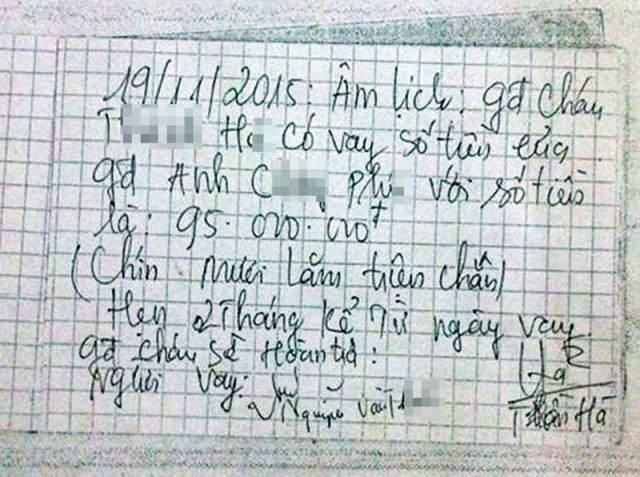 19/11/2015: Âm lịch: gđ cháu
T Hà có vay số tiền của
gđ Anh C Phú với số tiền
là: 95.000.000đ
(Chín mươi lăm triệu chẵn)
Hẹn 2 Tháng kể Từ ngày vay
gđ cháu sẽ Hoàn trả:
Người vay:
Hà
Nguyễn văn T